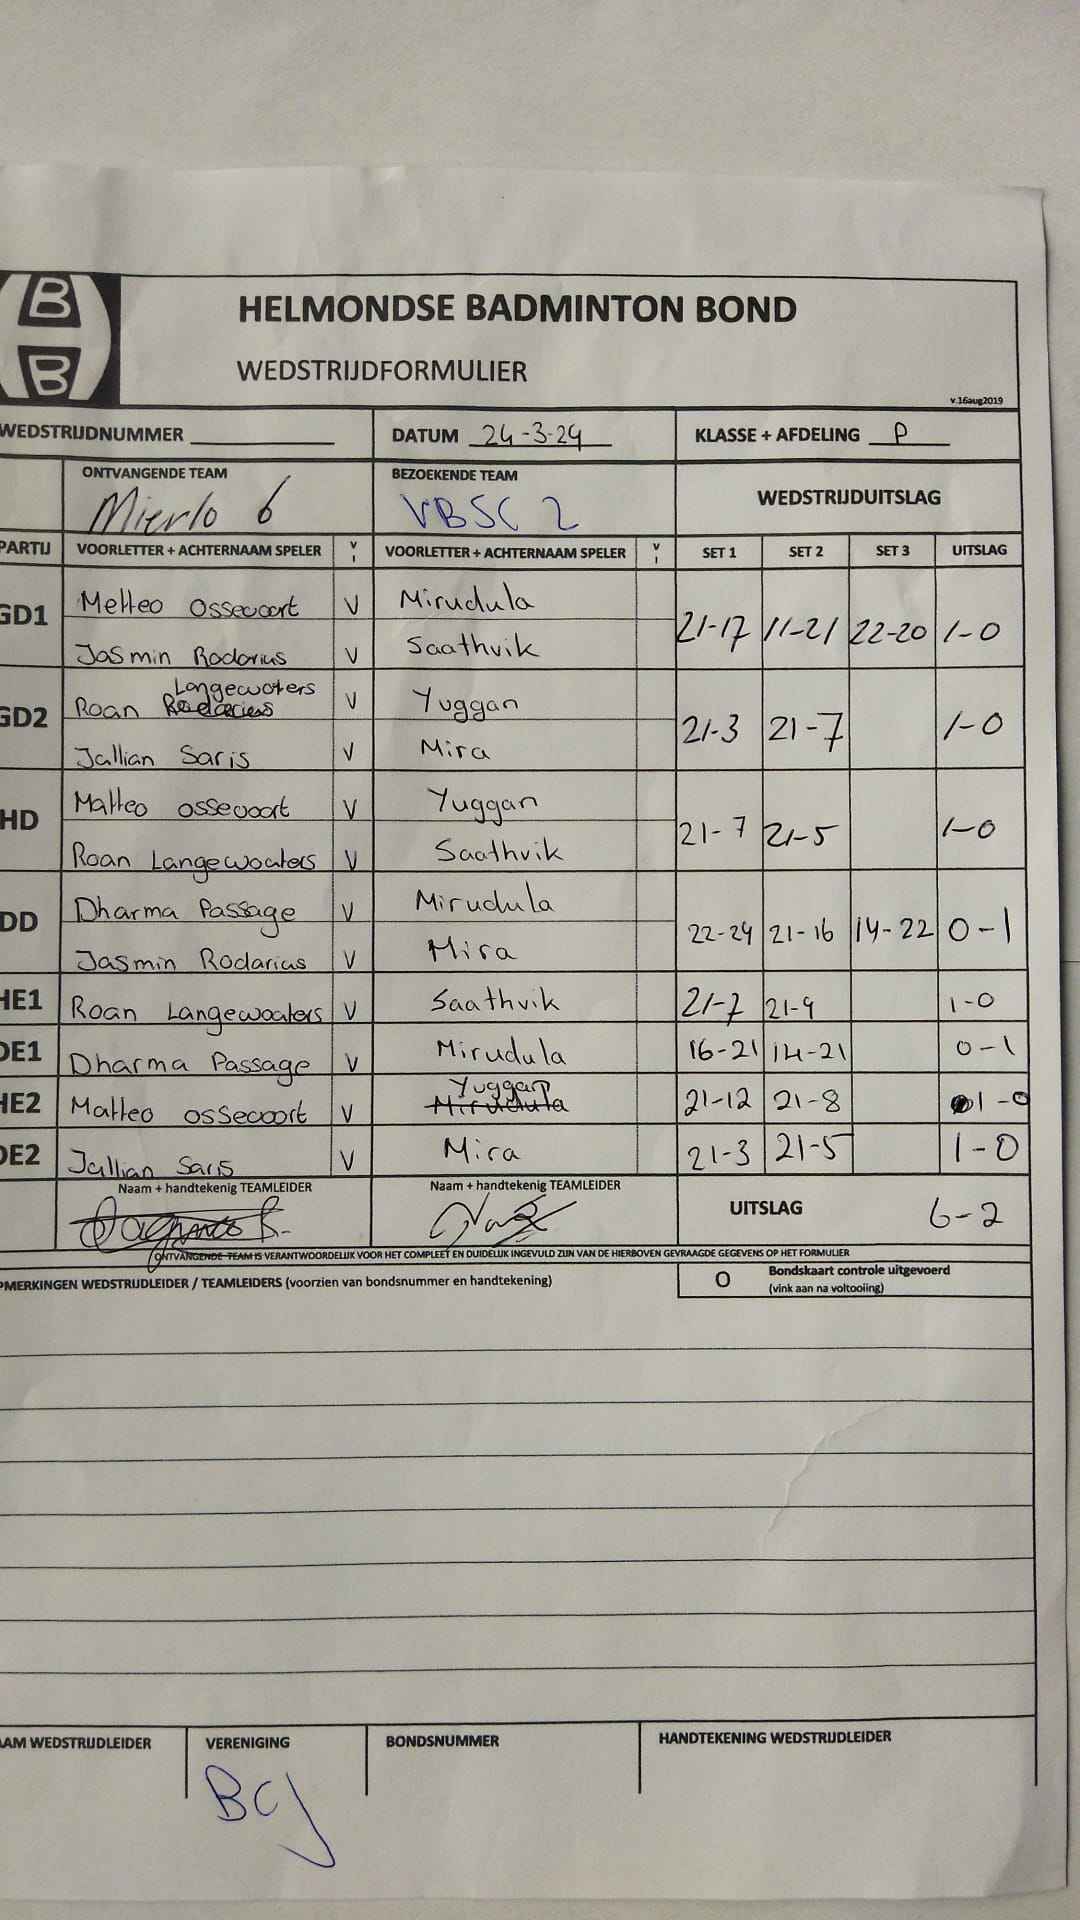 B
B
HELMONDSE BADMINTON BOND
WEDSTRIJDFORMULIER
v.16aug2019
WEDSTRIJDNUMMER
DATUM 24-3-24
KLASSE + AFDELING P
ONTVANGENDE TEAM
Mierlo 6
BEZOEKENDE TEAM
VBSC 2
WEDSTRIJDUITSLAG
PARTIJ VOORLETTER + ACHTERNAAM SPELER V I VOORLETTER + ACHTERNAAM SPELER V I SET 1 SET 2 SET 3 UITSLAG
GD1 Metteo Ossevoort V Mirudula
Jasmin Rodarius V Saathvik
21-17 11-21 22-20 1-0
GD2 Roan Langewoters V Yuggan
Jallian Saris V Mira
21-3 21-7 1-0
HD Matteo ossevoort V Yuggan
Roan Langewoaters V Saathvik
21-7 21-5 1-0
DD Dharma Passage V Mirudula
Jasmin Rodarius V Mira
22-24 21-16 14-22 0-1
HE1 Roan Langewoaters V Saathvik 21-7 21-9 1-0
DE1 Dharma Passage V Mirudula 16-21 14-21 0-1
HE2 Matteo ossevoort V Yuggan Mirudula 21-12 21-8 1-0
DE2 Jallian Saris V Mira 21-3 21-5 1-0
Naam + handtekenig TEAMLEIDER
Naam + handtekenig TEAMLEIDER
UITSLAG 6-2
ONTVANGENDE TEAM IS VERANTWOORDELIJK VOOR HET COMPLEET EN DUIDELIJK INGEVULD ZIJN VAN DE HIERBOVEN GEVRAAGDE GEGEVENS OP HET FORMULIER
PMERKINGEN WEDSTRIJDLEIDER / TEAMLEIDERS (voorzien van bondsnummer en handtekening)
O Bondskaart controle uitgevoerd
(vink aan na voltooiing)
AAM WEDSTRIJDLEIDER
VERENIGING
BCJ
BONDSNUMMER
HANDTEKENING WEDSTRIJDLEIDER